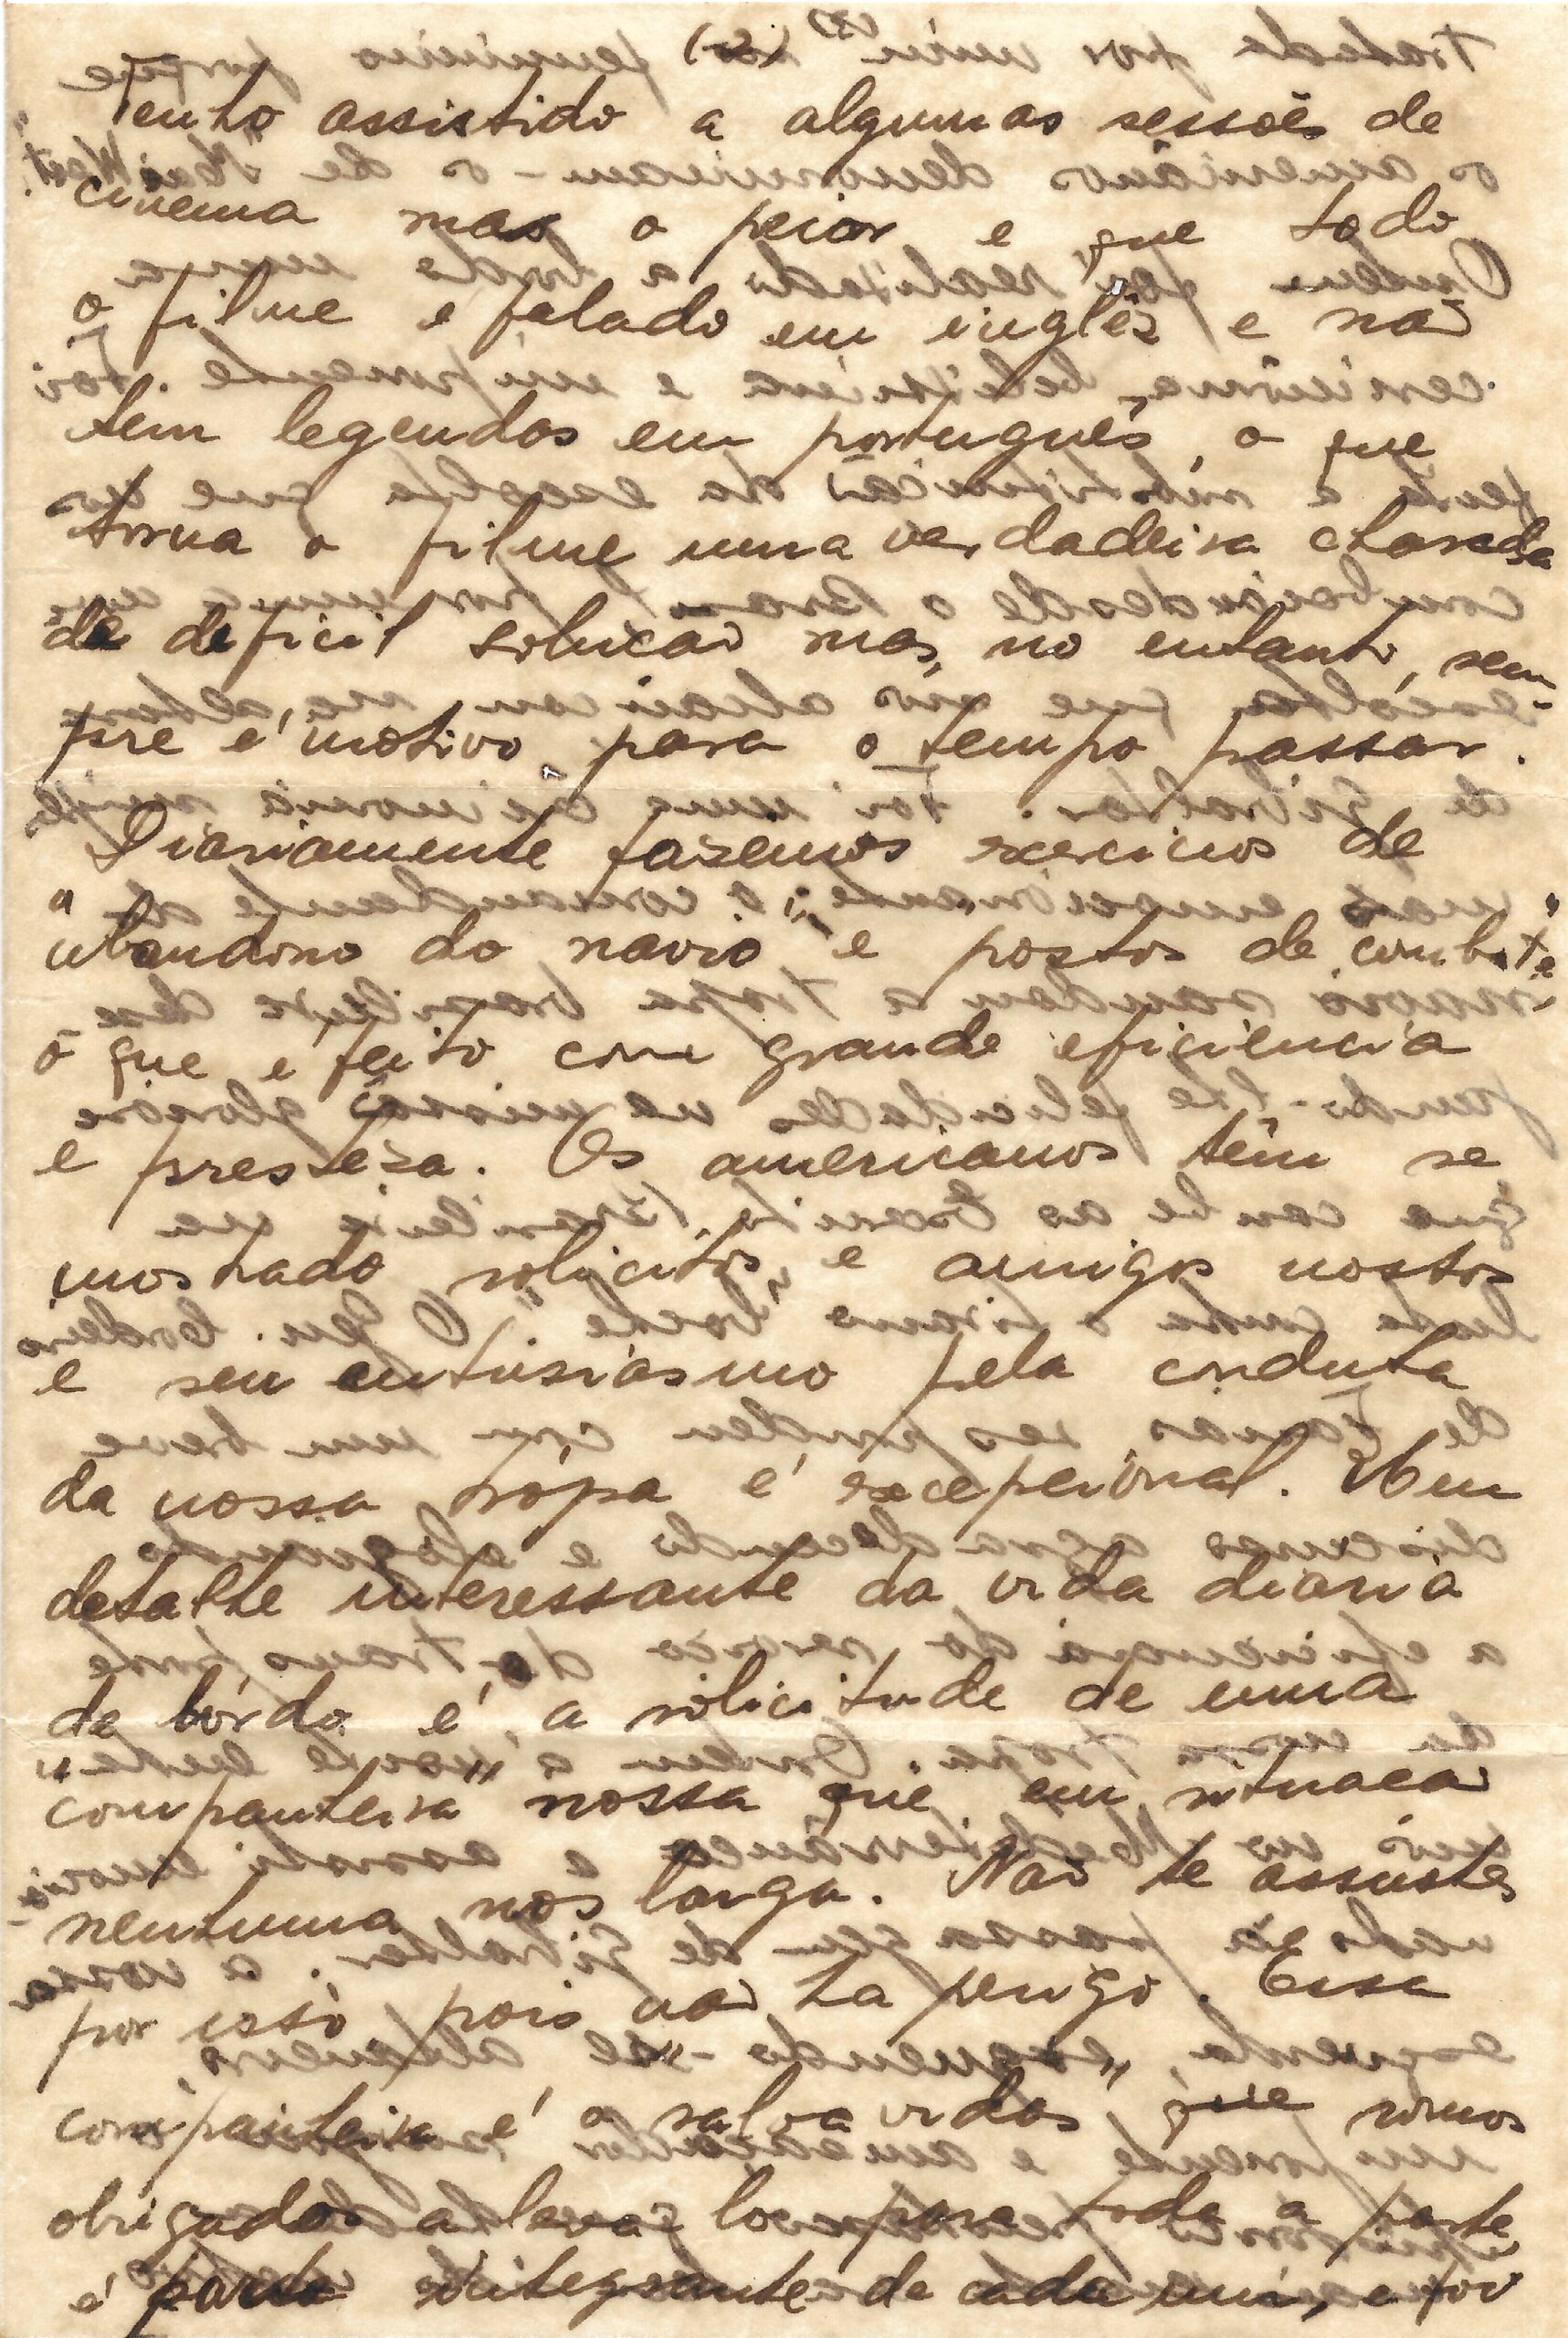 (2)
Tenho assistido a algumas sessões de
cinema mas o peior e que todo
o filme é falado em inglês e não
tem legendas em português, o que
torna o filme uma verdadeira charada
de dificil solução mas, no entanto, sem-
pre é motivo para o tempo passar.
Diariamente fazemos exercicios de
"abandono do navio" e postos de combate"
o que é feito com grande eficiencia
e presteza. Os americanos têm se
mostrado solicitos e amigos nossos
e seu entusiásmo pela conduta
da nossa trópa é excepcional. Um
detalhe interessante da vida diaria
de bórdo é a solicitude de uma
"companheira" nossa que em situação
nenhuma nos larga. Não te assustes
por isso pois não ha perigo. Essa
companheira é o salva vidas que somos
obrigados a leva-lo para toda a parte
é parte integrante de cada um, e por